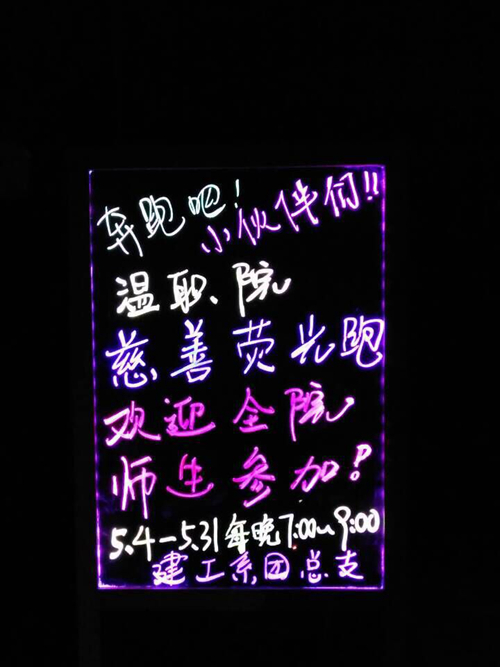 奔跑吧! 小伙伴们!!
温职院
慈善荧光跑
欢迎全院
师生参加!
5.4-5.31每晚7:00~9:00
建工系团总支